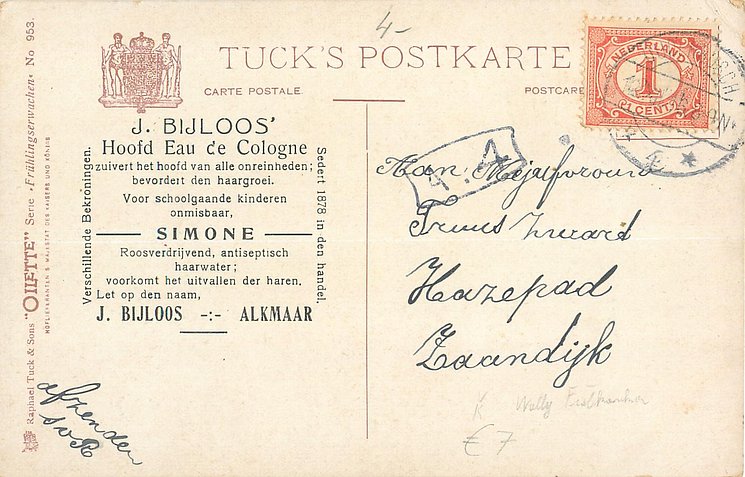 4-
TUCK'S POSTKARTE
CARTE POSTALE
POSTCARD
NEDERLAND
1
1 CENT
4.4
J. BIJLOOS'
Hoofd Eau de Cologne
zuivert het hoofd van alle onreinheden;
bevordert den haargroei.
Voor schoolgaande kinderen
onmisbaar,
SIMONE
Roosverdrijvend, antiseptisch
haarwater;
voorkomt het uitvallen der haren.
Let op den naam,
J. BIJLOOS -:- ALKMAAR
Verschillende Bekroningen.
Sedert 1878 in den handel.
Raphael Tuck & Sons "OILETTE" Serie „Frühlingserwachen" No 953.
HOFLIEFERANTEN S. MAJESTÄT DES KAISERS UND KÖNIGS
Aan Mejufvrouw
Truus Zwaard
Hazepad
Zaandijk
afzender
SvR
€ 7